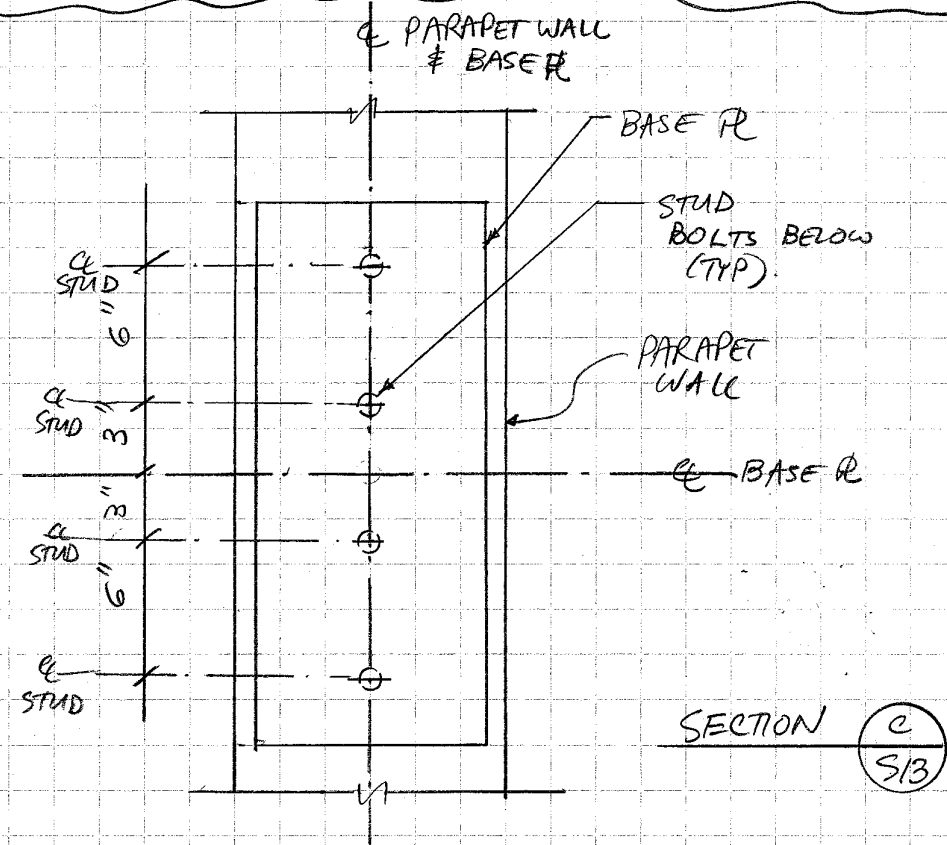 ℄ PARAPET WALL
& BASE ⅊
BASE ⅊
STUD
BOLTS BELOW
(TYP).
℄
STUD
6"
PARAPET
WALL
℄
STUD
3"
℄ BASE ⅊
3"
℄
STUD
6"
℄
STUD
SECTION C
S/3